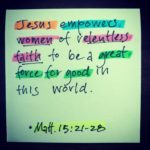 Jesus empowers
women of relentless
faith to be a great
force for good in
this world.
• Matt. 15:21-28